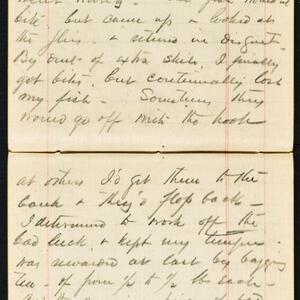 bite. but came up & looked at
the flies. & retired in disgust-
By dint of extra skill. I finally
got bites. but continually lost
my fish - Sometimes they
would go off with the hook
at others I'd get them to the
bank & they'd flop back -
I determined to work off the
bad luck. & kept my temper.
was rewarded at last by bagging
ten - of from ½ to ½ lb each -